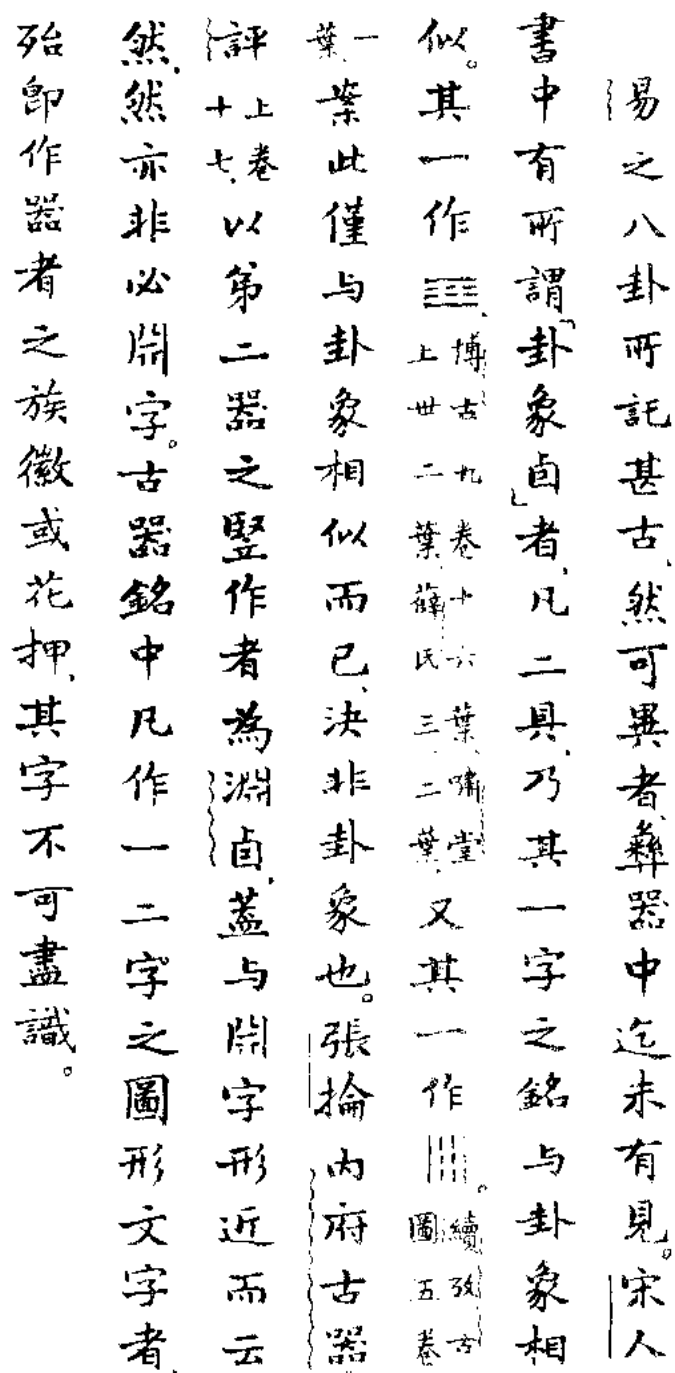 易之八卦所託甚古、然可異者、彝器中迄未有見。宋人
書中有所謂「卦象卣」者、凡二具、乃其一字之銘与卦象相
似。其一作䷁、博古九卷十六葉、嘯堂上世二葉、薛氏三、二葉、又其一作。續攷古圖五卷
一葉、葉此僅与卦象相似而已、決非卦象也。張掄内府古器
評上卷十七、以第二器之豎作者為淵卣、蓋与𣶒字形近而云
然、然亦非必𣶒字。古器銘中凡作一二字之圖形文字者、
殆即作器者之族徽或花押、其字不可盡識。